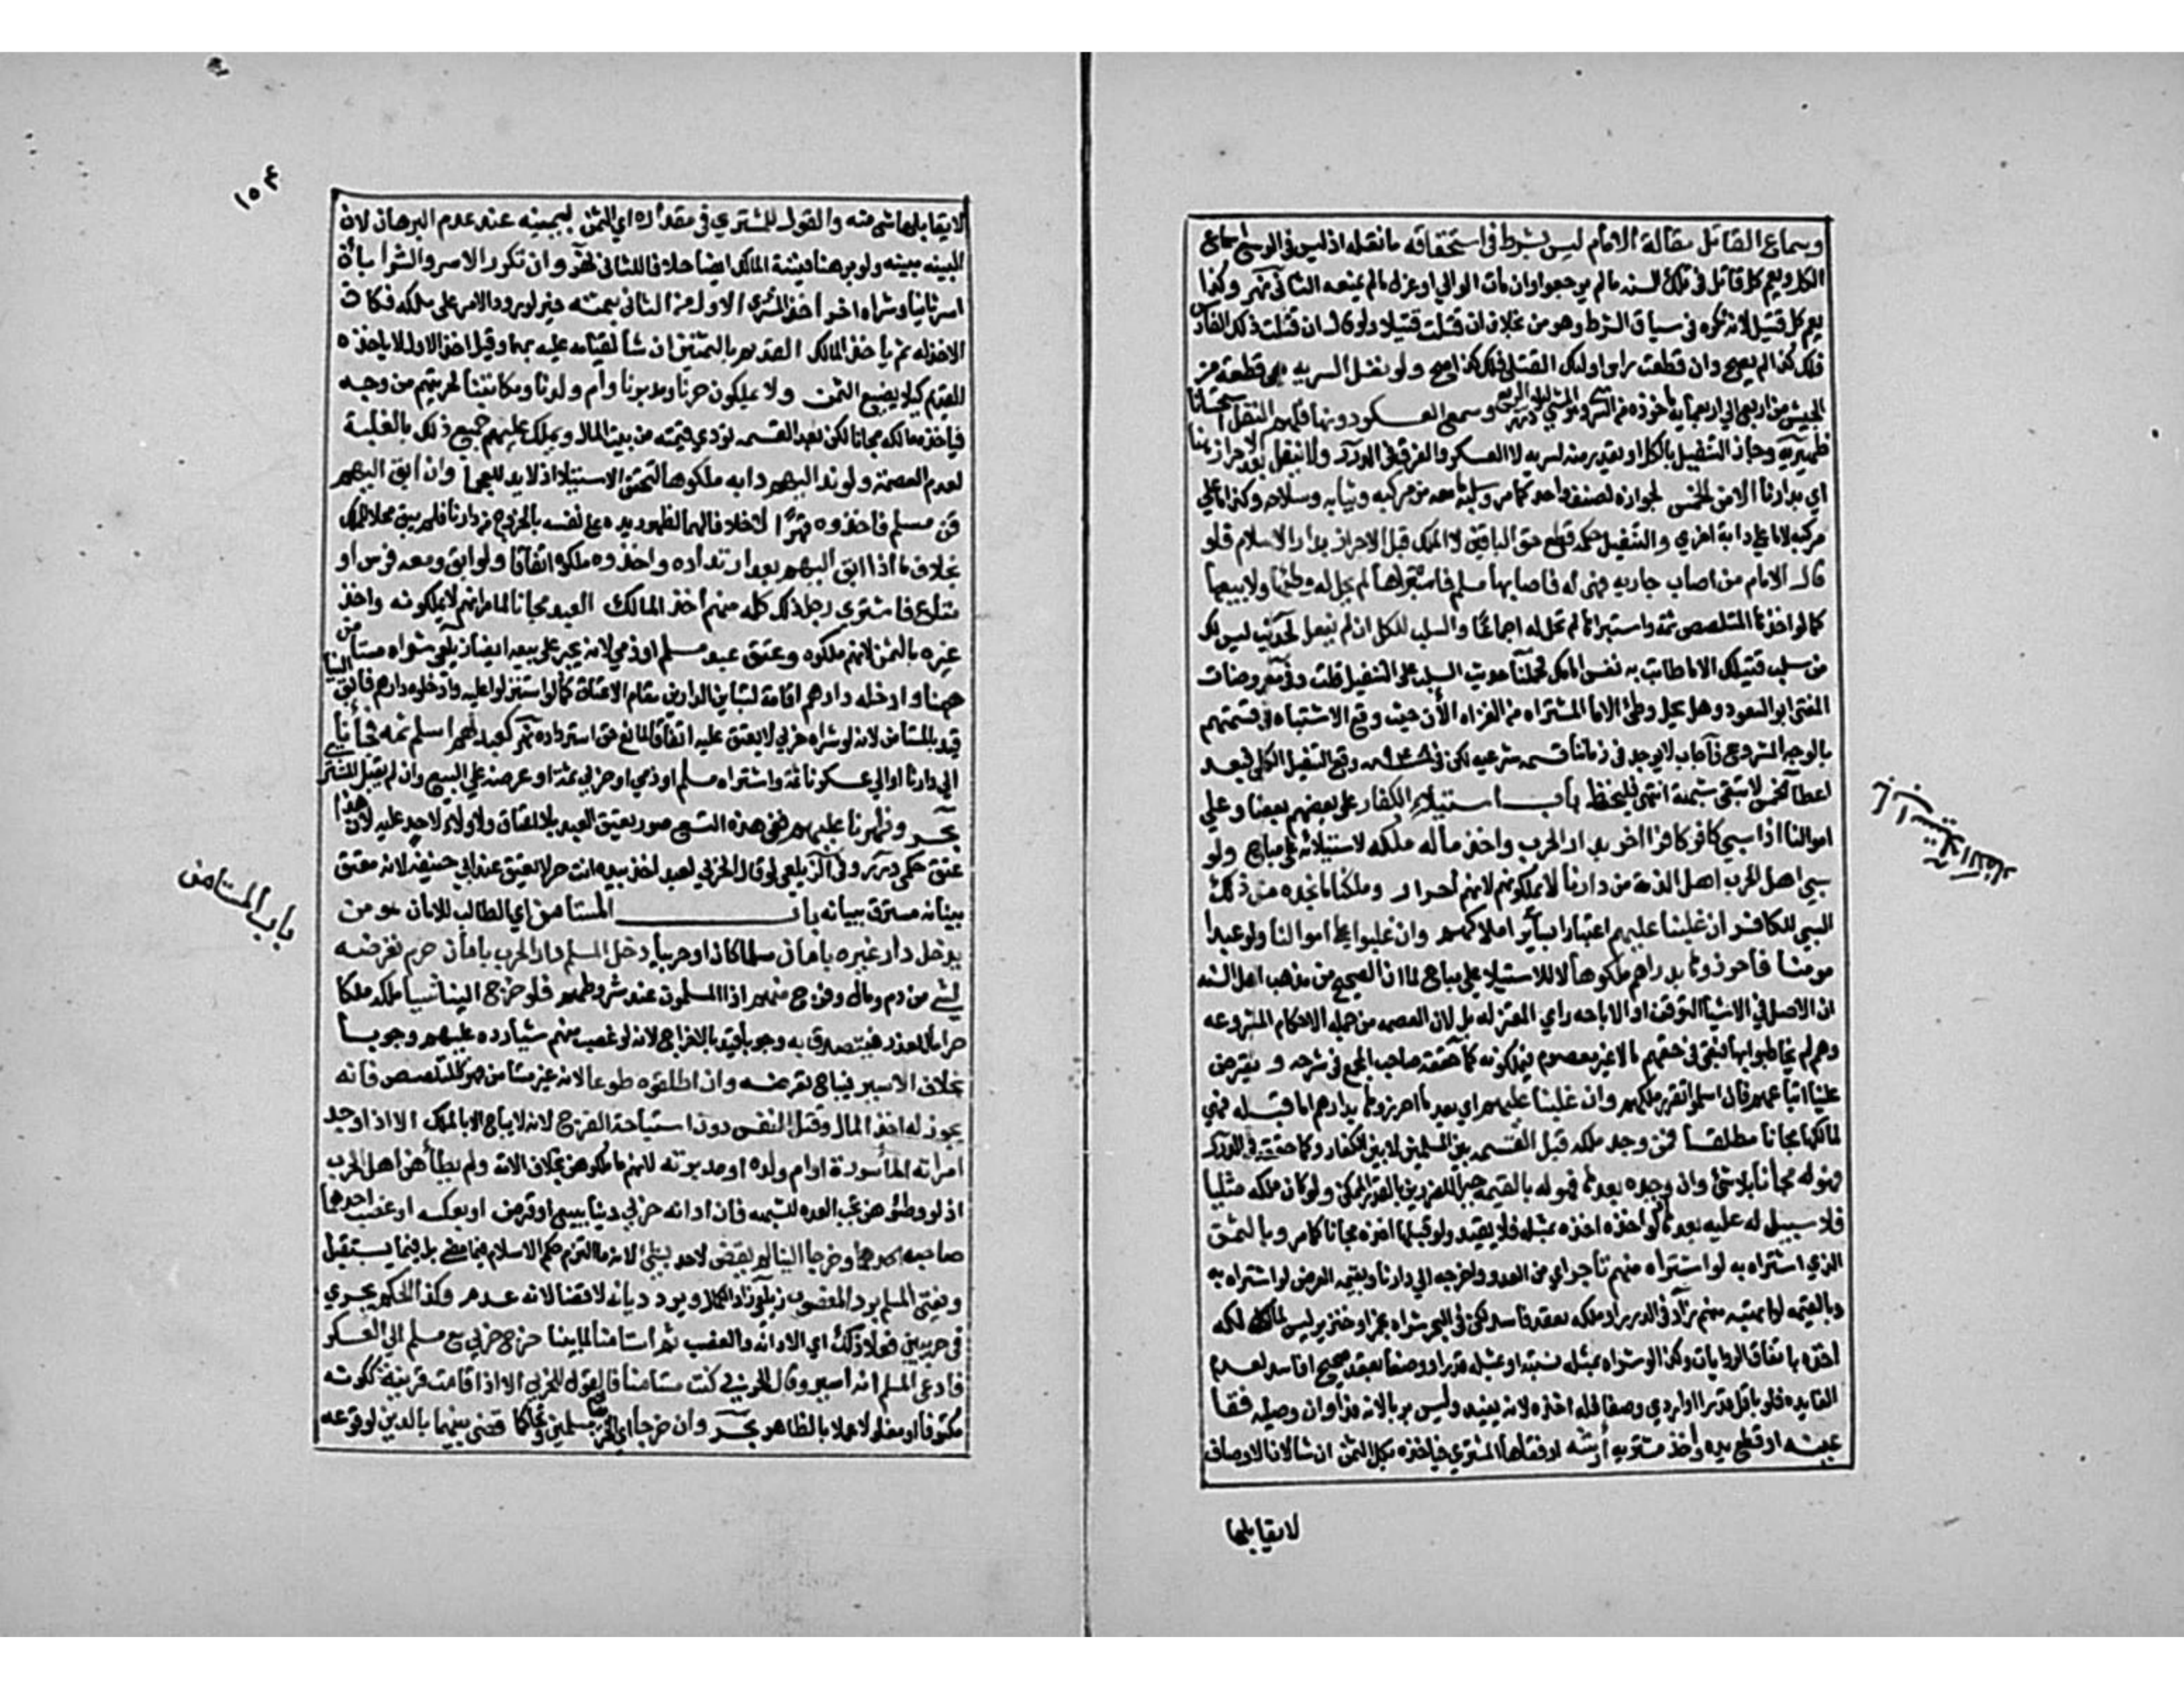 وسماع القاتل مقالة الامام ليس بشرط في استحقاقه ما نفله اذ ليس في الوسع اسماع
الكل ويعم كل قاتل في تلك السنة ما لم يرجعوا وان مات الوالي او عزل ما لم يمنعه الثاني نهر وكذا
يعم كل قتيل لانه نكره في سياق الشرط وهو من بخلاف ان قتلت قتيلا ولو قال ان قتلت ذلك الفارس
فلك كذا لم يصح وان قطعت راس اولئك القتلى فلك كذا صح ولو نفل السريه هي قطعة من
الجيش من اربعة الى اربعمايه وسمع العسكر دونها فلهم النفل استحسانا
ظهيريه وجاز التنفيل بالكل او بقدر منه لسريه لا العسكر والفرق في الدرر ولا ينفل بعد الاحراز هنا
اي بدارنا الا من الخمس لجوازه لصنف واحد كما مر وسلبه ما معه من مركبه وثيابه وسلاحه وكذا ما على
مركبه لا ما على دابة اخري والتنفيل حكمه قطع حق الباقين لا الملك قبل الاحراز بدار الاسلام فلو
قال الامام من اصاب جاريه فهي له فاصابها مسلم فاستبراها لم يحل له وطئها ولا بيعها
كما لو اخذها المتلصص ثمة واستبراها لم تحل له اجماعا والسلب للكل ان لم ينفل لحديث ليس لك
من سلب قتيلك الا ما طابت به نفس امامك فحملنا حديث السلب على التنفيل قلت وفي معروضات
المفتي ابو السعود وهل يحل وطئ الاما المشتراه من الغزاه الآن حيث وقع الاشتباه في قسمتهم
بالوجه المشروع فاجاب لا يوجد في زماننا قسمه شرعيه لكن في وقع التنفيل الكلي فبعد
اعطا الخمس لا تبقى شبهة انتهى فليحفظ باب استيلاء الكفار على بعضهم بعضا وعلي
اموالنا اذا سبي كافر كافرا اخر بدار الحرب واخذ ماله ملكه لاستيلائه على مباح ولو
سبي اهل الحرب اهل الذمة من دارنا لا يملكونهم لانهم احرار وملكنا ما نجده من ذلك
السبي للكافر ان غلبنا عليهم اعتبارا بسائر املاكهم وان غلبوا على اموالنا ولو عبدا
مومنا فاحرزوها بدارهم ملكوها لا للاستيلا على مباح لما ان الصحيح من مذهب اهل السنه
ان الاصل في الاشيا التوقف او الاباحه راي المعتزله بل لان العصمه من جمله الاحكام المشروعه
وهم لم يخاطبوا بها فبقى في حقهم مالا غير معصوم فيملكونه كما حققه صاحب المجمع في شرحه ويفترض
علينا اتباعهم فان اسلموا تقرر ملكهم وان غلبنا عليهم اي بعد ما احرزوها بدارهم اما قبله فهي
لمالكها مجانا مطلقا فمن وجد ملكه قبل القسمه بين المسلمين لا بين الكفار وكما حققه في الدرر
فهو له مجانا بلا شئ وان وجده بعدها فهو له بالقيمه جبرا للضررين بالقدر الممكن ولو كان ملكه مثليا
فلا سبيل له عليه بعدها لو اخذه اخذه بمثله فلا يفيد ولو قبلها اخذه مجانا كما مر وبالثمن
الذي اشتراه به لو اشتراه منهم تاجر اي من العدو واخرجه الى دارنا وبقيمه العرض لو اشتراه به
وبالقيمه لو اتهبه منهم زاد في الدرر او ملكه بعقد فاسد لكن في البحر شراه بخمر او خنزير ليس لمالكه
اخذه باتفاق الروايات وكذا لو شراه بمثله نسيئة او بمثله قدرا ووصفا بعقد صحيح او فاسد لعدم
الفايده فلو باقل قدرا او اردي وصفا فله اخذه لانه يفيد وليس بربا لانه فداء وان وصيله فقأ
عينه او قطع يده واخذ مشتريه أرشه او فقأها المشتري فياخذه بكل الثمن ان شا لان الاوصاف
لا يقابلها
استيلاء الكفار
١٥٤
لا يقابلها شي منه والقول للمشتري في مقداره اي الثمن بيمينه عند عدم البرهان لان
البينه مبينه ولو برهنا فبينة المالك ايضا خلافا للثاني نهر وان تكرر الاسر والشرا بان
اسر ثانيا وشراه اخر اخذ المشتري الاول من الثاني بثمنه جبرا لورود الاسر على ملكه فكان
الاخذ له ثم ياخذ المالك القديم بالثمنين ان شا لقيامه عليه بهما وقبل اخذ الاول لا ياخذه
القديم كيلا يضيع الثمن ولا يملكون حرنا ومدبرنا وام ولدنا ومكاتبنا لحريتهم من وجه
فياخذه مالكه مجانا لكن بعد القسمه تؤدي قيمته من بيت المال ويملك عليهم جميع ذلك بالغلبة
لعدم العصمة ولو ند اليهم دابه ملكوها لتحقق الاستيلا اذ لا يد للعجما وان ابق اليهم
قن مسلم فاخذوه قهرا لا خلافا لهما لظهور يده على نفسه بالخروج من دارنا فلم يبق محلا للملك
بخلاف ما اذا ابق اليهم بعد ارتداده واخذوه ملكوه اتفاقا ولو ابق ومعه فرس او
متاع فاشتري رجل ذلك كله منهم اخذ المالك العبد مجانا لما مر انهم لا يملكونه واخذ
غيره بالثمن لانهم ملكوه وعتق عبد مسلم او ذمي لانه يجبر على بيعه ايضا زيلعي شراه مستامن
ههنا وادخله دارهم اقامة لتباين الدارين مقام الاعتاق كما لو استولوا عليه وادخلوه دارهم فابق الينا
قيد بالمستامن لانه لو شراه حربي لا يعتق عليه اتفاقا لمانع حق استرداده نهر كعبد لهم اسلم ثمه فجاءنا
الى دارنا او الي عسكرنا ثمة واشتراه مسلم او ذمي او حربي ثمة او عرضه علي البيع وان لم يقبل المشتري
بحر وظهرنا عليهم ففي هذه التسع صور يعتق العبد بلا اعتاق ولا ولاء لاحد عليه لان هذا
عتق حكمي درر وفي الزيلعي لو قال الحربي لعبده اخذ بيده انت حر لا يعتق عند ابي حنيفه لانه معتق
ببيانه مسترق ببنانه باب المستامن اي الطالب للامان هو من
يدخل دار غيره بامان مسلما كان او حربيا دخل المسلم دار الحرب بامان حرم تعرضه
لشئ من دم ومال وفرج منهم اذ المسلمون عند شروطهم فلو اخرج الينا شيا ملكه ملكا
حراما للغدر فيتصدق به وجوبا قيد بالاخراج لانه لو غصب منهم شيا رده عليهم وجوبا
بخلاف الاسير فيباح تعرضه وان اطلقوه طوعا لانه غير مستامن فهو كالمتلصص فانه
يجوز له اخذ المال وقتل النفس دون استباحة الفرج لانه لا يباح الا بالملك الا اذا وجد
امراته المأسورة او ام ولده او مدبرته لانهم ما ملكوهن بخلاف الامه ولم يطأهن اهل الحرب
اذ لو وطئوهن تجب العده للشبهه فان ادانه حربي دينا ببيع او قرض او بعكسه او غصب احدهما
صاحبه وخرجا الينا لم يقض لاحد بشئ لانه ما التزم حكم الاسلام فيما مضى بل فيما يستقبل
ويفتي المسلم برد المغصوب زيلعي زاد الكمال ويرد ديانه لا قضا لانه غدر وكذا الحكم يجري
في حربيين فعلا ذلك اي الادانة والغصب ثم استامنا لما بينا خرج حربي مع مسلم الى العسكر
فادعى المسلم انه اسير وقال الحربي كنت مستامنا فالقول للحربي الا اذا قامت قرينة ككونه
مكتوفا او مغلولا عملا بالظاهر بحر وان خرجا اي الحربيان مسلمين وتحاكما قضي بينهما بالدين لوقوعه
باب المستامن